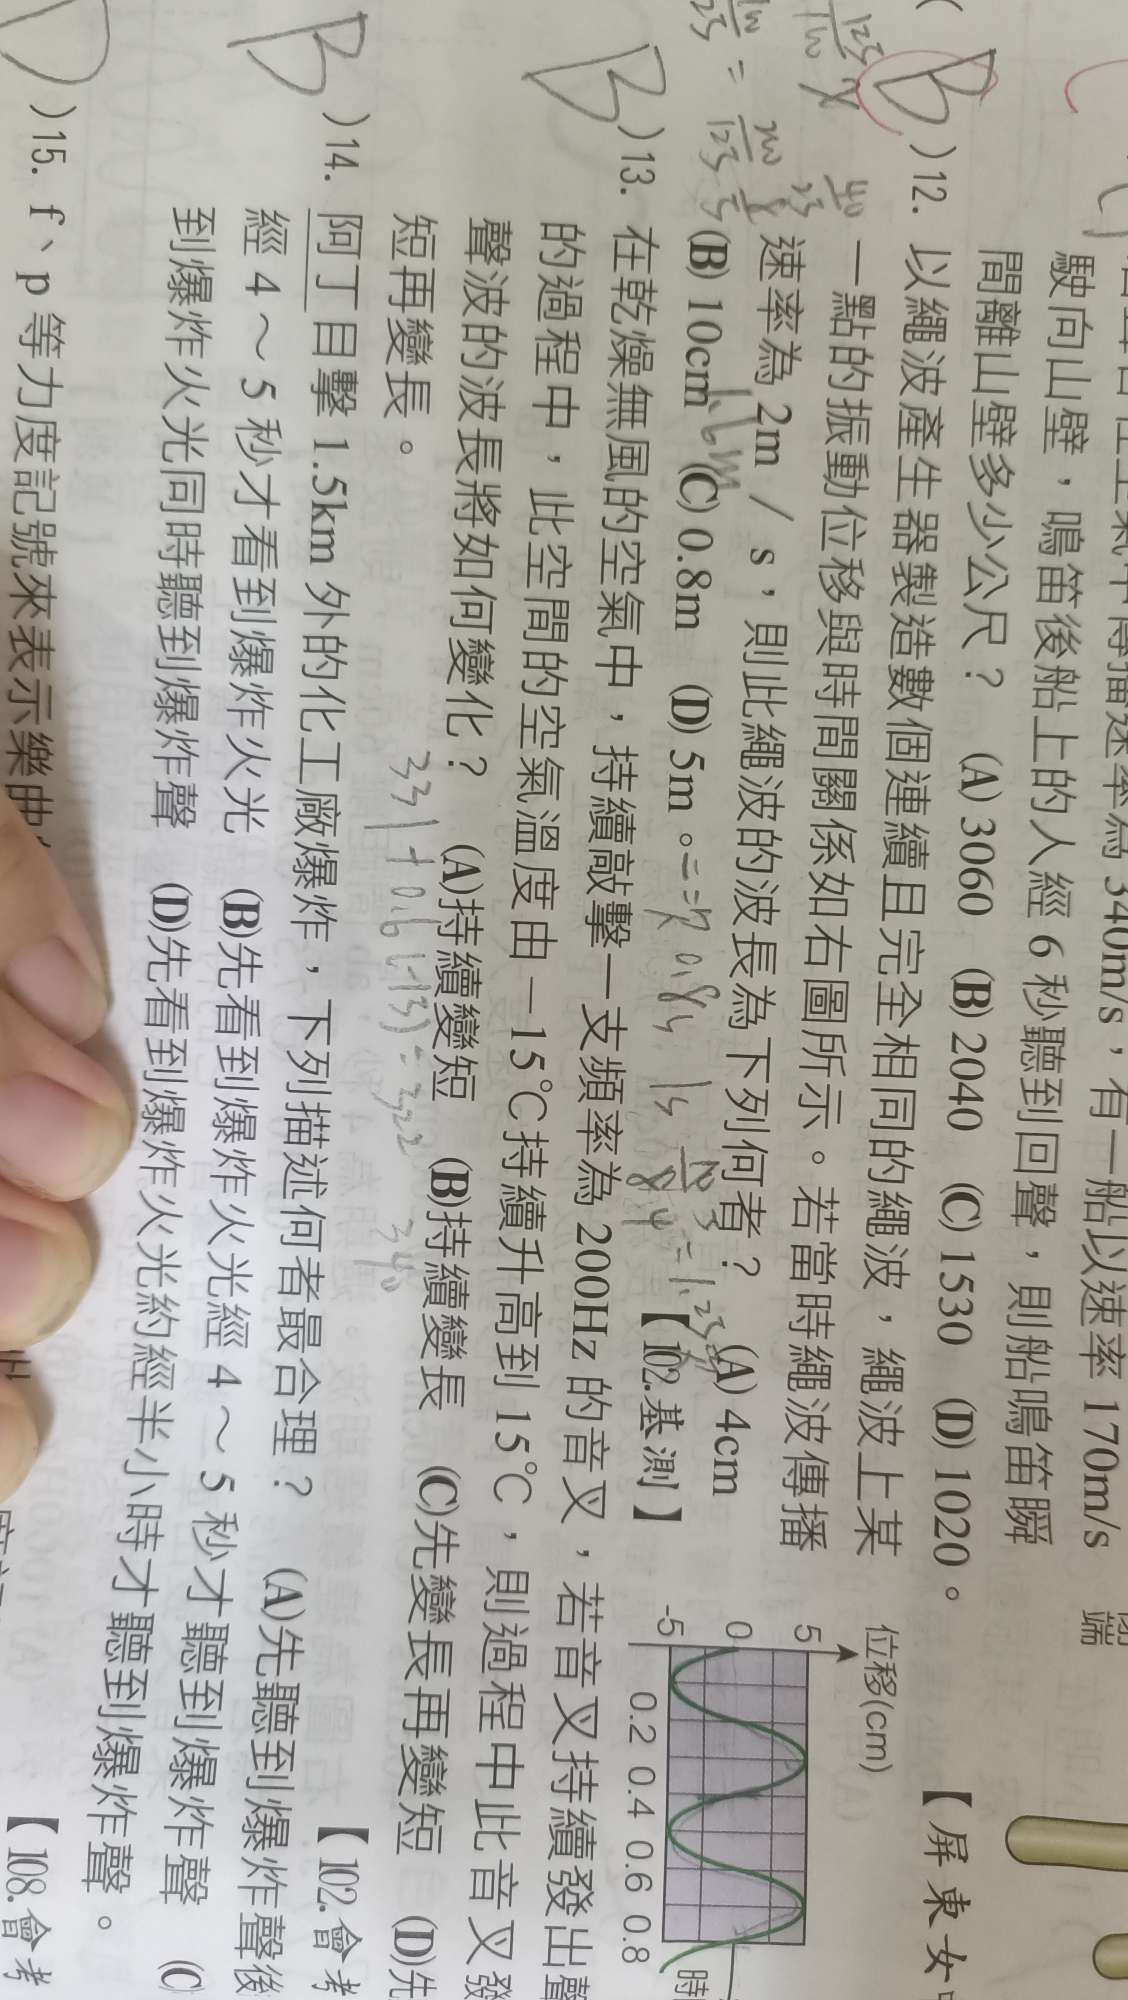 駛向山壁，鳴笛後船上的人經 6 秒聽到回聲，則船鳴笛瞬
間離山壁多少公尺？ (A) 3060 (B) 2040 (C) 1530 (D) 1020。
【屏東女
B )12. 以繩波產生器製造數個連續且完全相同的繩波，繩波上某
一點的振動位移與時間關係如右圖所示。若當時繩波傳播
速率為 2m / s，則此繩波的波長為下列何者？ (A) 4cm
(B) 10cm (C) 0.8m (D) 5m。 【102.基測】
位移(cm)
5
0
-5
0.2 0.4 0.6 0.8
時
B )13. 在乾燥無風的空氣中，持續敲擊一支頻率為 200Hz 的音叉，若音叉持續發出聲
的過程中，此空間的空氣溫度由－15℃持續升高到 15℃，則過程中此音叉發
聲波的波長將如何變化？ (A)持續變短 (B)持續變長 (C)先變長再變短 (D)先
短再變長。
【102.會考
331+0.6(-15)=322
340
B )14. 阿丁目擊 1.5km 外的化工廠爆炸，下列描述何者最合理？ (A)先聽到爆炸聲後
經 4～5 秒才看到爆炸火光 (B)先看到爆炸火光經 4～5 秒才聽到爆炸聲 (C)
到爆炸火光同時聽到爆炸聲 (D)先看到爆炸火光約經半小時才聽到爆炸聲。
【108.會考
D )15. f、p 等力度記號來表示樂曲